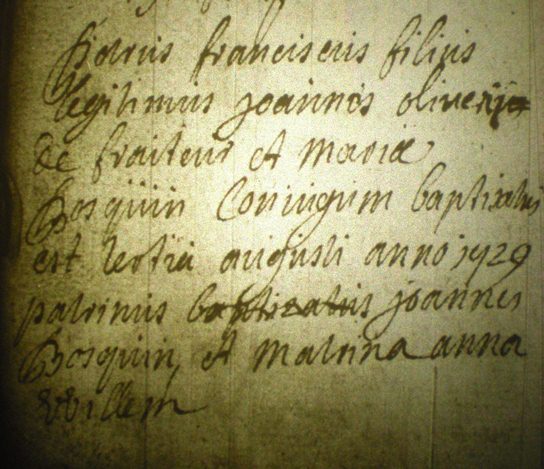 petrus franciscus filius
legitimus joannis oliverij
de fraiteur et Mariæ
Bosquin Coniugum baptizatus
est tertia augusti anno 1729
patrinus baptizatus joannes
Bosquin, et Matrina anna
Willem